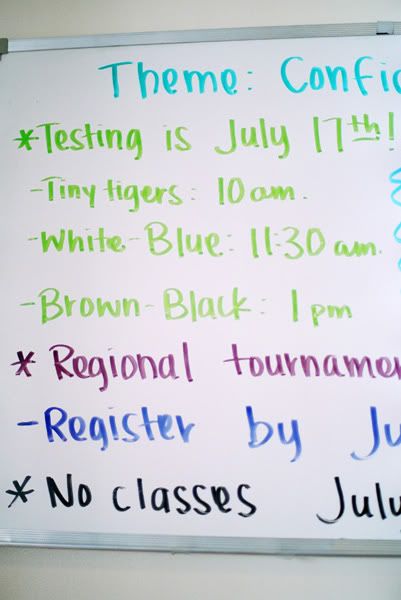 Theme: Confid
*Testing is July 17th!
-Tiny tigers: 10 am.
-White-Blue: 11:30 am.
-Brown-Black: 1 pm
* Regional tourname
-Register by Ju
* No classes July